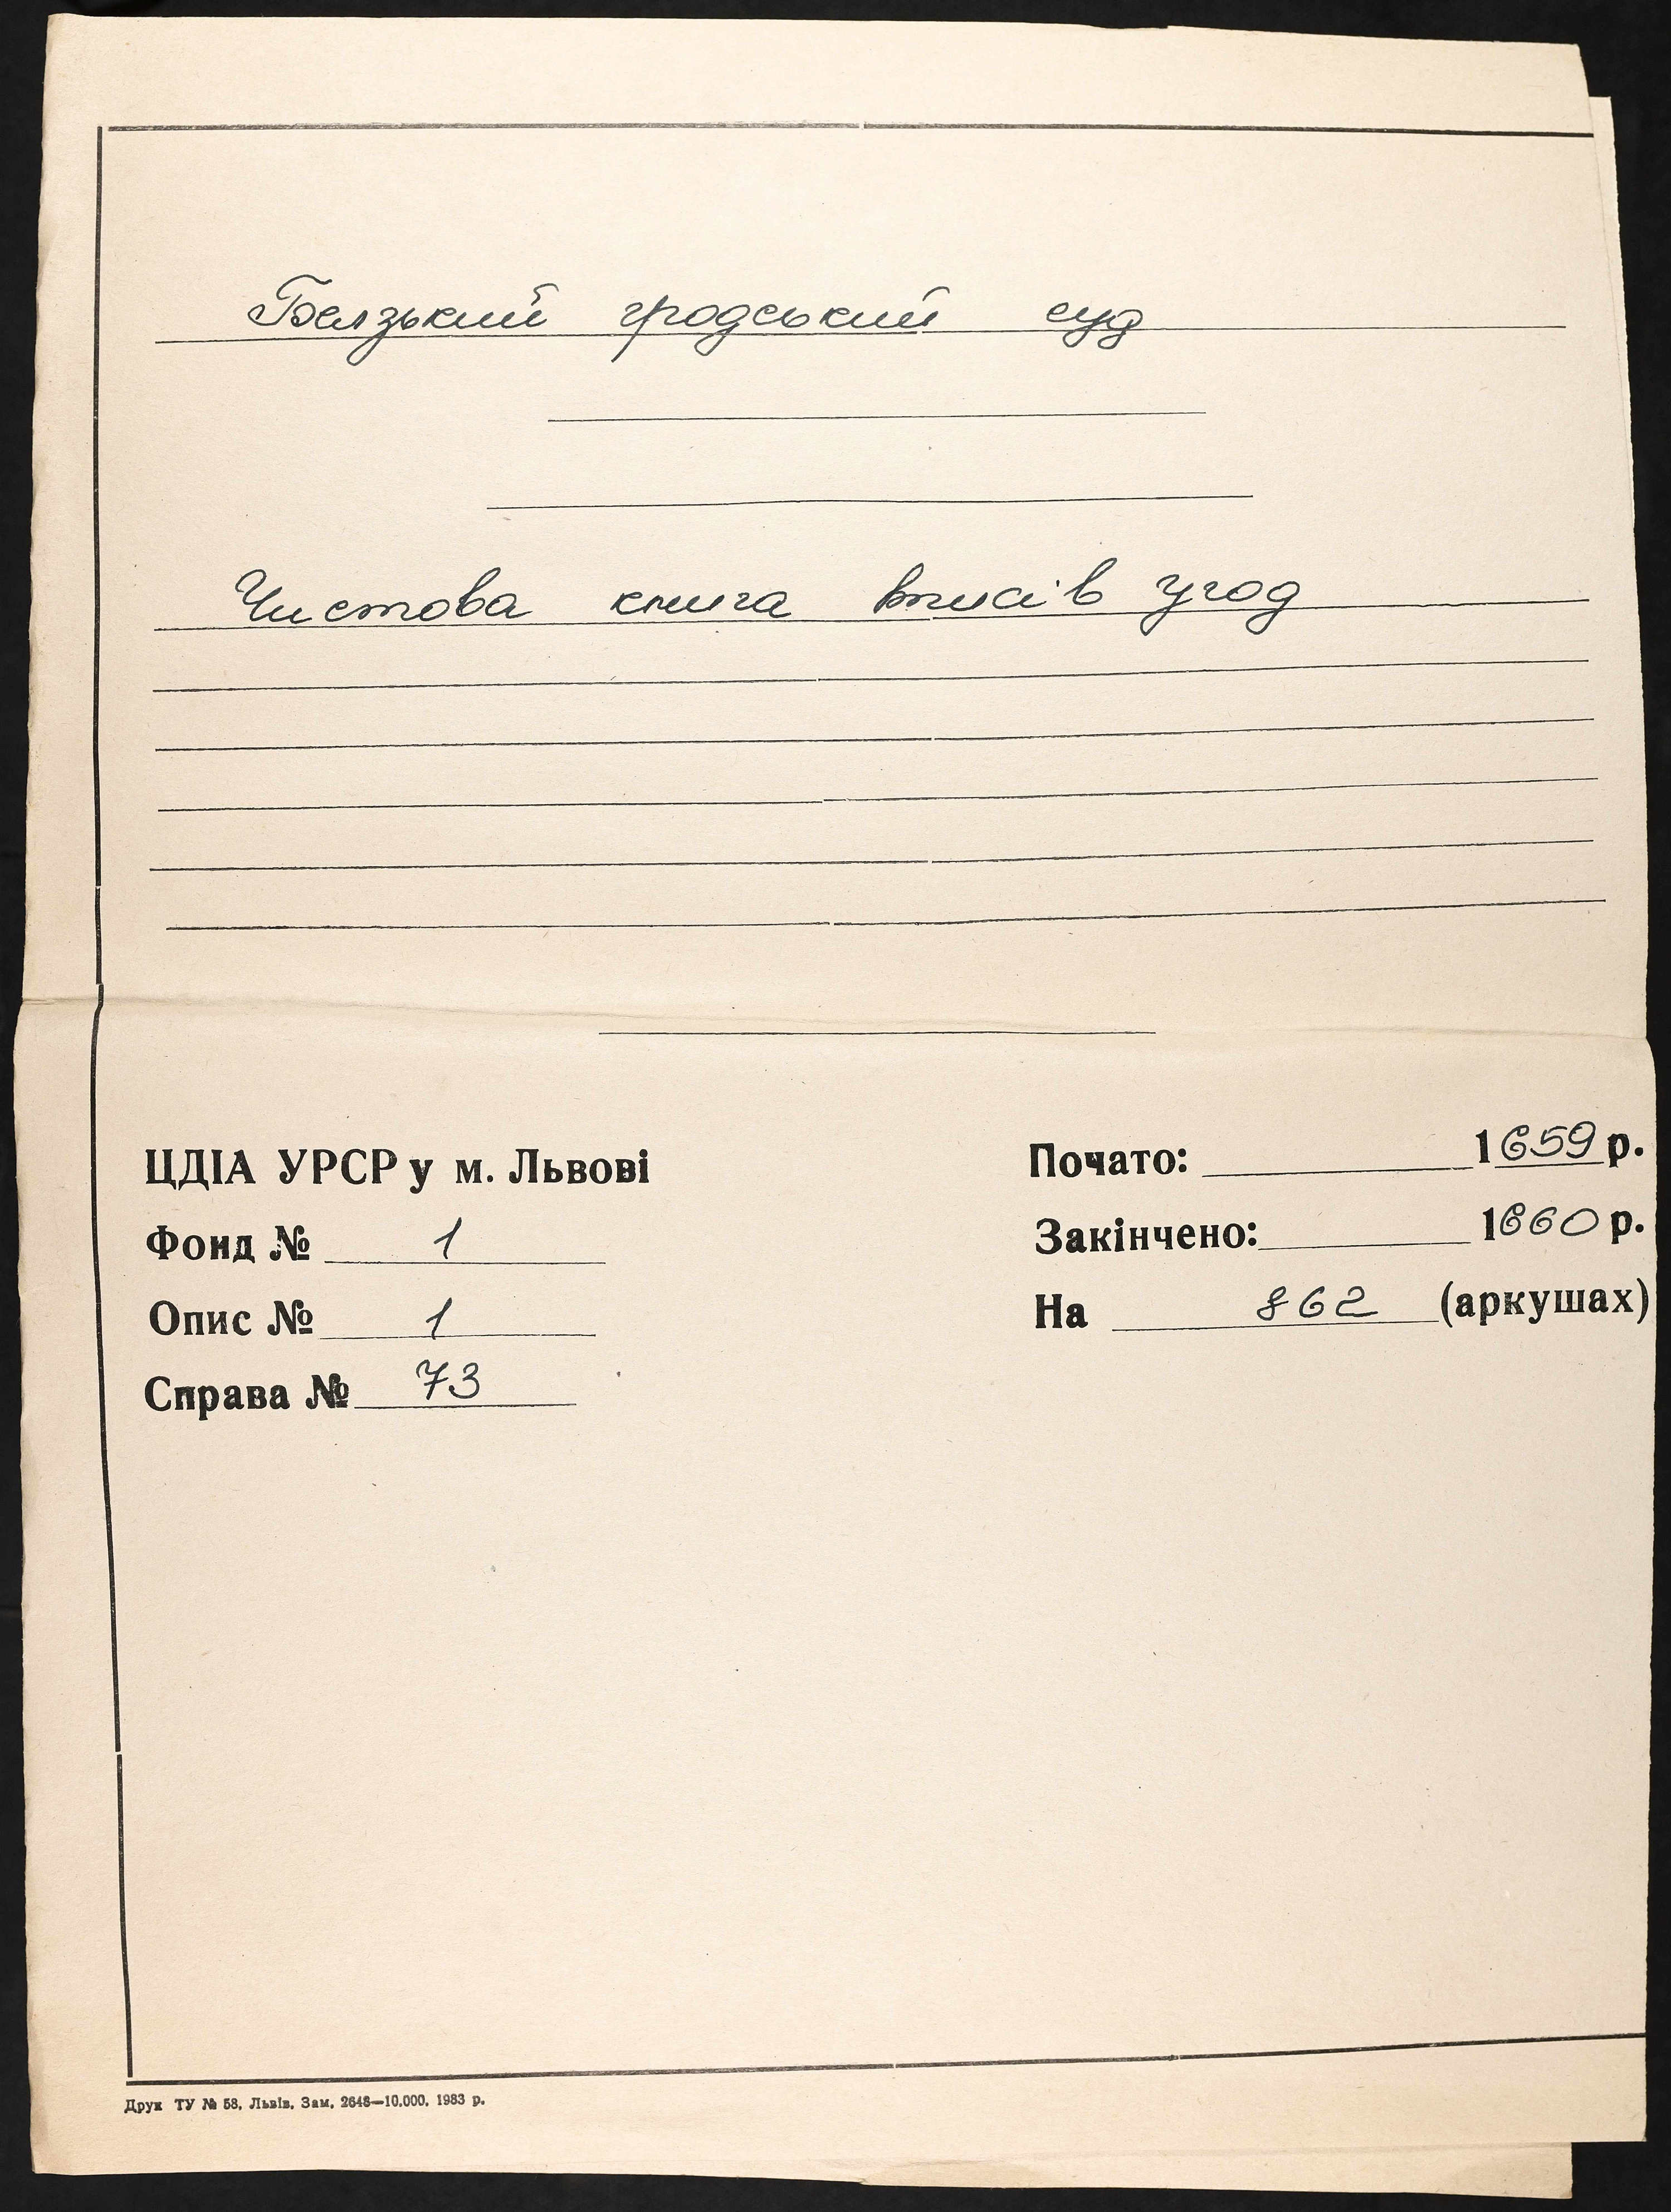 Белзький гродський суд
Чистова книга вписів угод
ЦДІА УРСР у м. Львові
Фонд № 1
Опис № 1
Справа № 73
Почато: 1659 р.
Закінчено: 1660 р.
На 862 (аркушах)
Друк ТУ № 58, Львів. Зам. 2648—10.000. 1983 р.